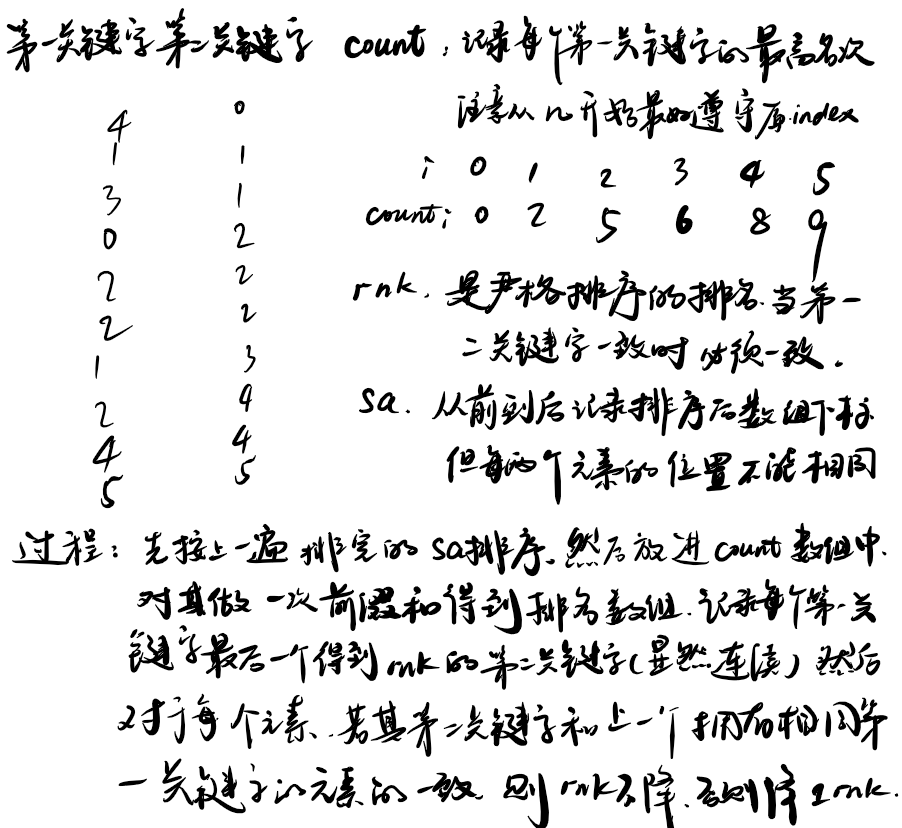 第一关键字 第二关键字 count：记录每个第一关键字的最高名次
注意从 n 开始最好遵守原 index
4 0
1 1
3 1
0 2
2 2
2 2
1 3
2 4
4 4
5 5
i 0 1 2 3 4 5
count: 0 2 5 6 8 9
rnk. 是严格排序的排名.当第一
二关键字一致时必须一致.
sa. 从前到后记录排序后数组下标
但每两个元素的位置不能相同
过程：先按上一遍排完的 sa排序.然后放进 count 数组中.
对其做一次前缀和得到排名数组.记录每个第一关
键字最后一个得到 rnk 的第二关键字(显然连续)然后
对于每个元素.若其第二关键字和上一个拥有相同第
一关键字的元素的一致.则 rnk不降.否则降 1 rnk.